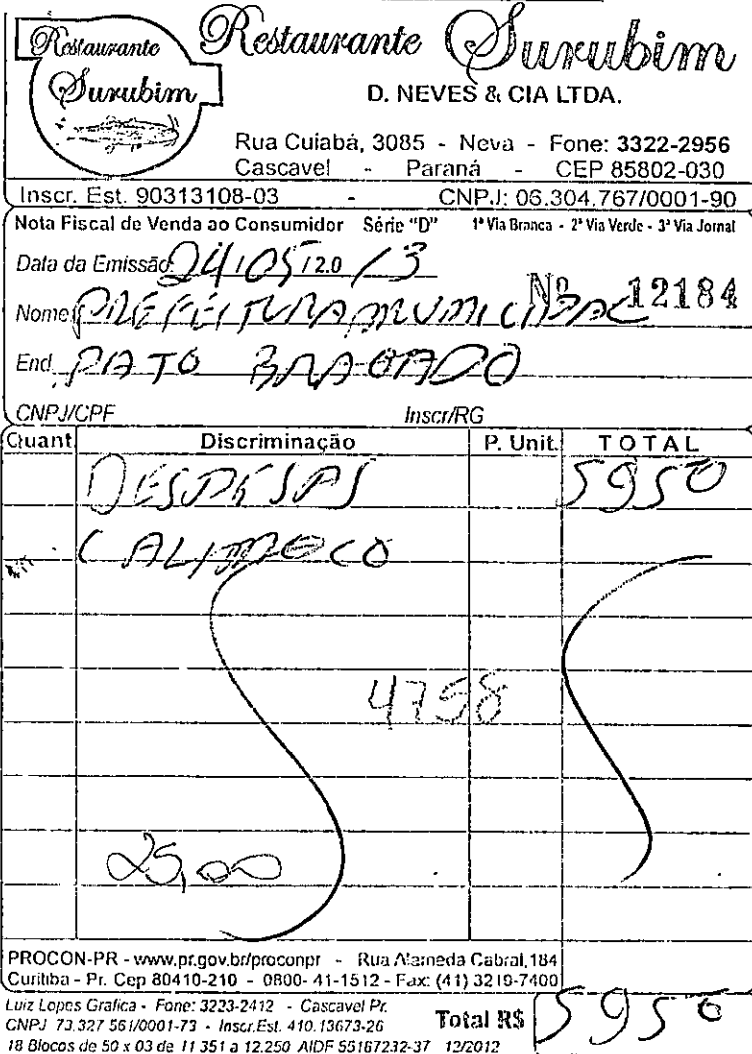 Restaurante
Surubim
Restaurante Surubim
D. NEVES & CIA LTDA.
Rua Cuiabá, 3085 - Neva - Fone: 3322-2956
Cascavel - Paraná - CEP 85802-030
Inscr. Est. 90313108-03 - CNPJ: 06.304.767/0001-90
Nota Fiscal de Venda ao Consumidor Série "D" 1ª Via Branca - 2ª Via Verde - 3ª Via Jornal
Data da Emissão 24/05/2013
Nº 12184
Nome PREFEITURA MUNICIPAL
End. PATO BRAGADO
CNPJ/CPF Inscr/RG
Quant. Discriminação P. Unit. TOTAL
DESPESAS 5950
C/
4758
25,00
PROCON-PR - www.pr.gov.br/proconpr - Rua Alameda Cabral, 184
Curitiba - Pr. Cep 80410-210 - 0800-41-1512 - Fax: (41) 3219-7400
Luiz Lopes Grafica - Fone: 3223-2412 - Cascavel Pr.
CNPJ 73.327 561/0001-73 - Inscr.Est. 410.13673-26
18 Blocos de 50 x 03 de 11 351 a 12.250 AIDF 55167232-37 12/2012
Total R$ 5950